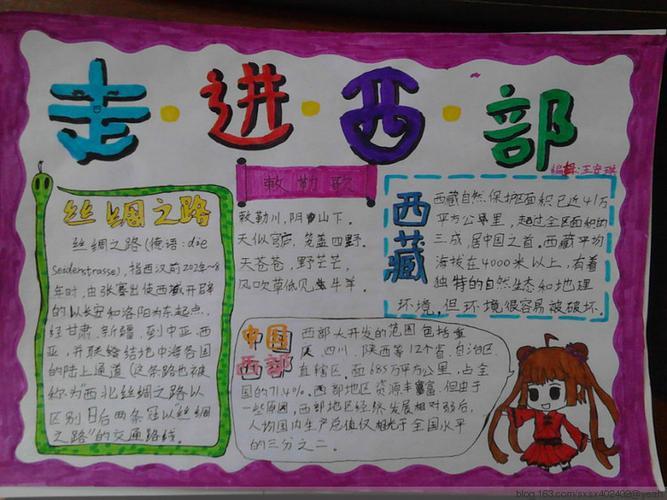 走·进·西·部
编辑:王安琪
丝绸之路
丝绸之路(德语:die
Seidenstrasse),指西汉前202年~8
年时,由张骞出使西藏开辟
的以长安和洛阳为东起点,
经甘肃、新疆,到中亚、西
亚,并联络结地中海各国
的陆上通道(这条路也被
称为"西北丝绸之路以
区别日后两条冠以丝绸
之路"的交通路线。
敕勒歌
敕勒川,阴山下。
天似穹庐,笼盖四野。
天苍苍,野茫茫,
风吹草低见牛羊。
西藏
西藏自然保护区面积已达41万
平方公里,超过全区面积的
三成,居中国之首。西藏平均
海拔在4000米以上,有着
独特的自然生态和地理
环境,但环境很容易被破坏.
中国
西部
西部大开发的范围包括重
庆、四川、陕西等12个省、自治区、
直辖区.面685万平方公里,占全
国的71.4%。西部地区资源丰富,但由于
一些原因,西部地区经济发展相对弱后,
人均国内生产总值仅相当于全国水平
的三分之二。